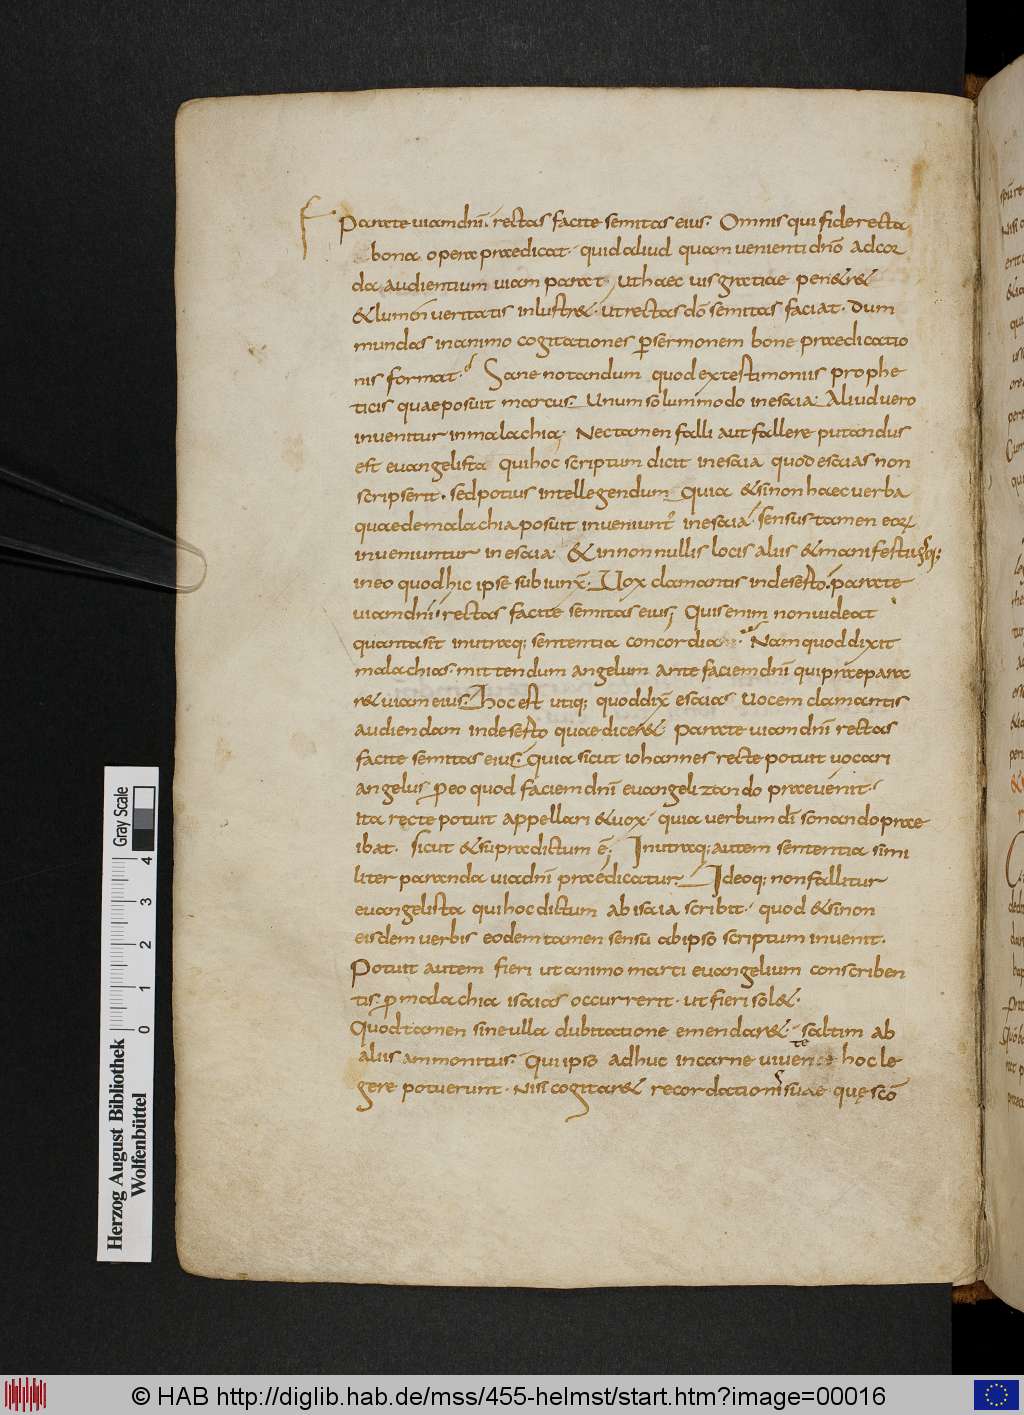 Parate uiam dnī. rectas facite semitas eius. Omnis qui fide recta
bona opera praedicat. quid aliud quam uenienti dn̄o ad cor
da audientium uiam parat. Ut haec uis gratiae penetret
& lumen ueritatis inlustr&. ut rectas dō semitas faciat. dum
mundas in animo cogitationes p sermonem bone praedicatio
nis format. Sane notandum quod ex testimoniis prophe
ticis quae posuit marcus. Unum solummodo in esaia. Aliud uero
inuenitur in malachia. Nec tamen falli aut fallere putandus
est euangelista qui hoc scriptum dicit in esaia quod esaias non
scripserit. sed potius intellegendum quia & si non haec uerba
quae de malachia posuit inueniunt̄ in esaia. sensus tamen eorꝝ
inueniuntur in esaia. & in non nullis locis aliis & manifestius q;
in eo quod hic ipse subiunx̄. Uox clamantis in deserto. parate
uiam dnī. rectas facite semitas eius. Quis enim non uideat
quanta sit in utraq; sententia concordia. Nam quod dixit
malachias. mittendum angelum ante faciem dnī qui praepara
r& uiam eius. hoc est utiq; quod dix̄ esaias uocem clamantis
audiendam in deserto quae dicer& parate uiam dnī rectas
facite semitas eius. quia sicut iohannes recte potuit uocari
angelus p eo quod faciem dnī euangelizando praeuenit.
ita recte potuit appellari & uox. quia uerbum dī sonando prae
ibat. sicut & supra dictum ē. In utraq; autem sententia simi
liter paranda uia dnī praedicatur. Ideoq; non fallitur
euangelista qui hoc dictum ab isaia scribit. quod & si non
eisdem uerbis eodem tamen sensu ab ipso scriptum inuenit.
Potuit autem fieri ut animo marci euangelium conscriben
tis. p malachia isaias occurrerit. ut fieri sol&.
Quod tamen sine ulla dubitatione emendar&. saltim ab
aliis ammonitus. Qui ipso adhuc in carne uiuente hoc le
gere potuerunt. Nisi cogitar& recordationi suae quę scō
Gray Scale
4 3 2 1 0
Herzog August Bibliothek
Wolfenbüttel
© HAB http://diglib.hab.de/mss/455-helmst/start.htm?image=00016